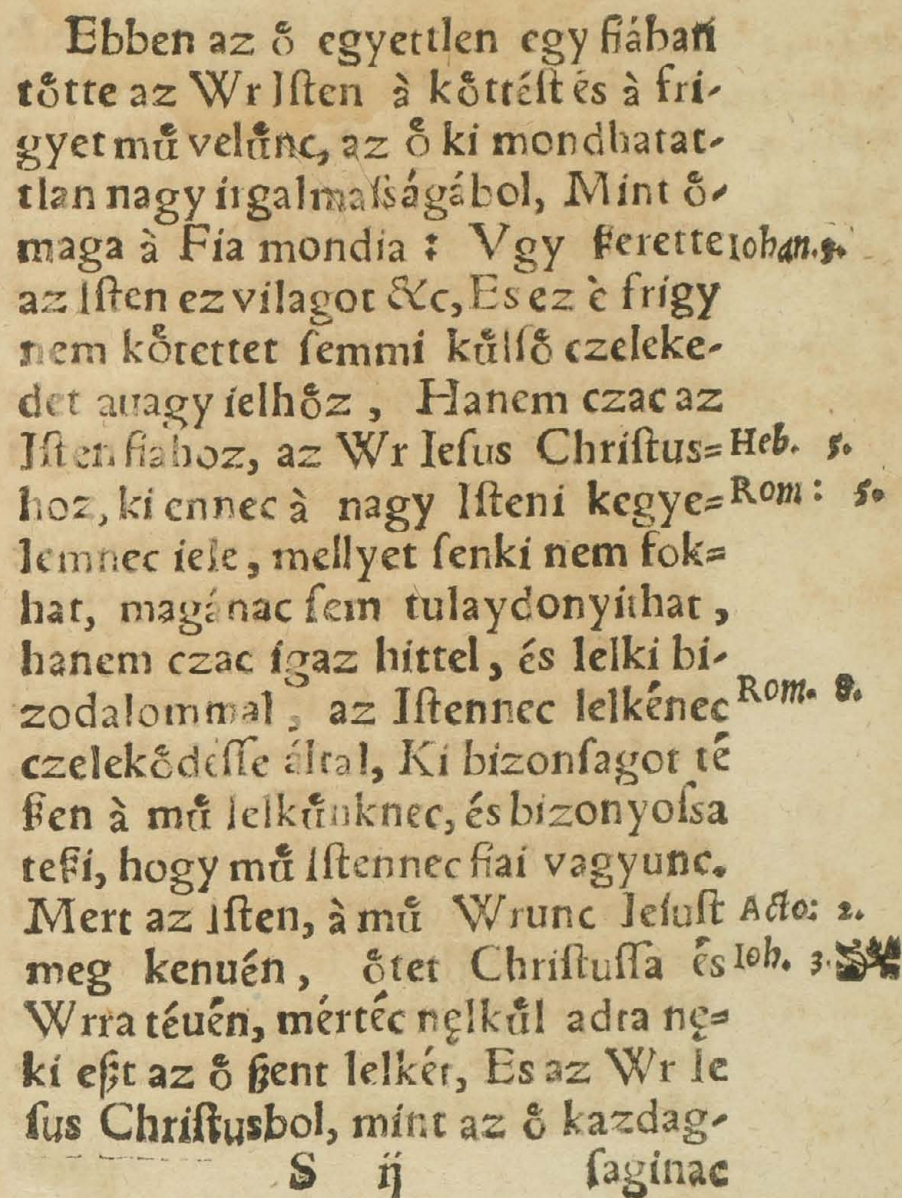 Ebben az ő egyettlen egy fiában
tőtte az Wr Iſten à kőttéſt és à fri-
gyet mű velűnc, az ő ki mondhatat-
tlan nagy irgalmaſságábol, Mint ő-
maga à Fia mondia : Vgy ßerette Iohan. 3.
az Iſten ez vilagot &c, Es ez è frigy
nem kőtettet ſemmi kűlſő czeleke-
det auagy ielhőz, Hanem czac az
Iſten fiahoz, az Wr Ieſus Chriſtus= Heb. 5.
hoz, ki ennec à nagy Iſteni kegye= Rom: 5.
lemnec iele, mellyet ſenki nem fok=
hat, magánac ſem tulaydonyithat,
hanem czac igaz hittel, és lelki bi-
zodalommal, az Iſtennec lelkénec Rom. 8.
czelekődeſſe által, Ki bizonſagot té
ßen à mű lelkűnknec, és bizonyoſsa
teßi, hogy mű iſtennec fiai vagyunc.
Mert az Iſten, à mű Wrunc Ieſuſt Acto: 2.
meg kenuén, őtet Chriſtuſſa és Ioh. 3.
Wrra téuén, mértéc nęlkűl adta nę=
ki eßt az ő ßent lelkét, Es az Wr Ie
ſus Chriſtusbol, mint az ő kazdag-
S ij ſaginac